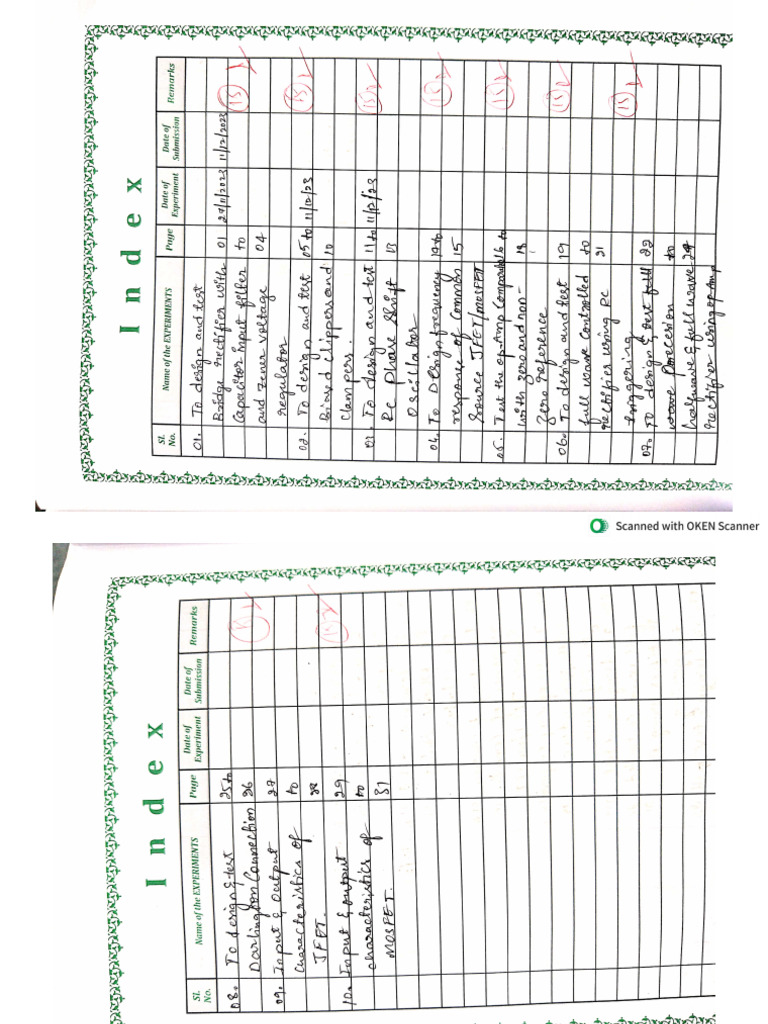 Index
Sl. No. Name of the EXPERIMENTS Page Date of Experiment Date of Submission Remarks
01. To design and test 01 27/11/2023 11/12/2023
Bridge rectifier with to (15)
Capacitor input filter 04
and zener voltage
regulator
02. To design and test 05 to 11/12/23 (15)
Biased clippers and 10
Clampers.
03. To design and test 11 to 11/12/23 (15)
RC Phase Shift 13
Oscillator
04. To Design frequency 14 to (15)
response of Common 15
Source JFET/MOSFET
05. Test the op-Amp Comparator 16 to (15)
with zero and non- 18
Zero reference
06. To design and test 19 (15)
full wave Controlled to
rectifier using RC 21
triggering
07. To design & test full 22 (15)
wave Precesion to
halfwave & full wave 24
rectifier using op-Amp
Scanned with OKEN Scanner
Index
Sl. No. Name of the EXPERIMENTS Page Date of Experiment Date of Submission Remarks
08. To design & test 25 to
Darlington Connection 26
09. Input & Output 27
Characteristics of to
JFET. 28
10. Input & output 29
characteristics of to
MOSFET. 31